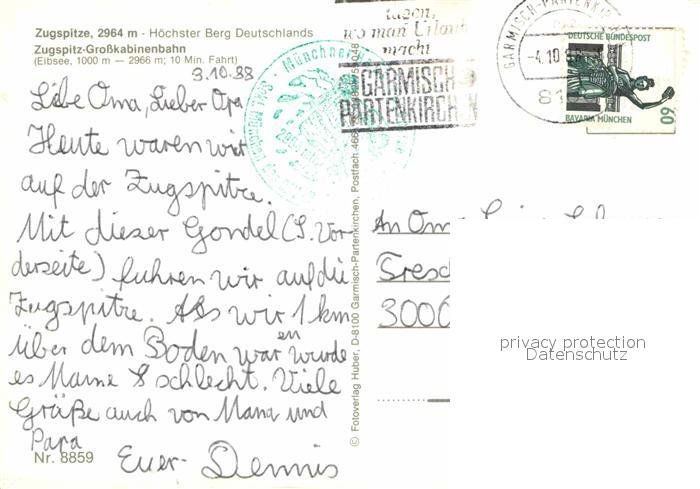 Zugspitze, 2964 m - Höchster Berg Deutschlands
Zugspitz-Großkabinenbahn
(Eibsee, 1000 m — 2966 m; 10 Min. Fahrt)
3.10.88
Liebe Oma, Lieber Opa
Heute waren wir
auf der Zugspitze.
Mit dieser Gondel (S. Vor-
derseite) fuhren wir auf die
Zugspitze. Als wir 1 km
über dem Boden waren wurde
es Mama schlecht. Viele
Grüße auch von Mama und
Papa
Euer Dennis
Nr. 8859
© Fotoverlag Huber, D-8100 Garmisch-Partenkirchen, Postfach 466
Münchner
wo man Urlaub
macht
GARMISCH-
PARTENKIRCHEN
GARMISCH-PARTENKIR
-4.10.
81
DEUTSCHE BUNDESPOST
BAVARIA MÜNCHEN
60
An
3000
privacy protection
Datenschutz